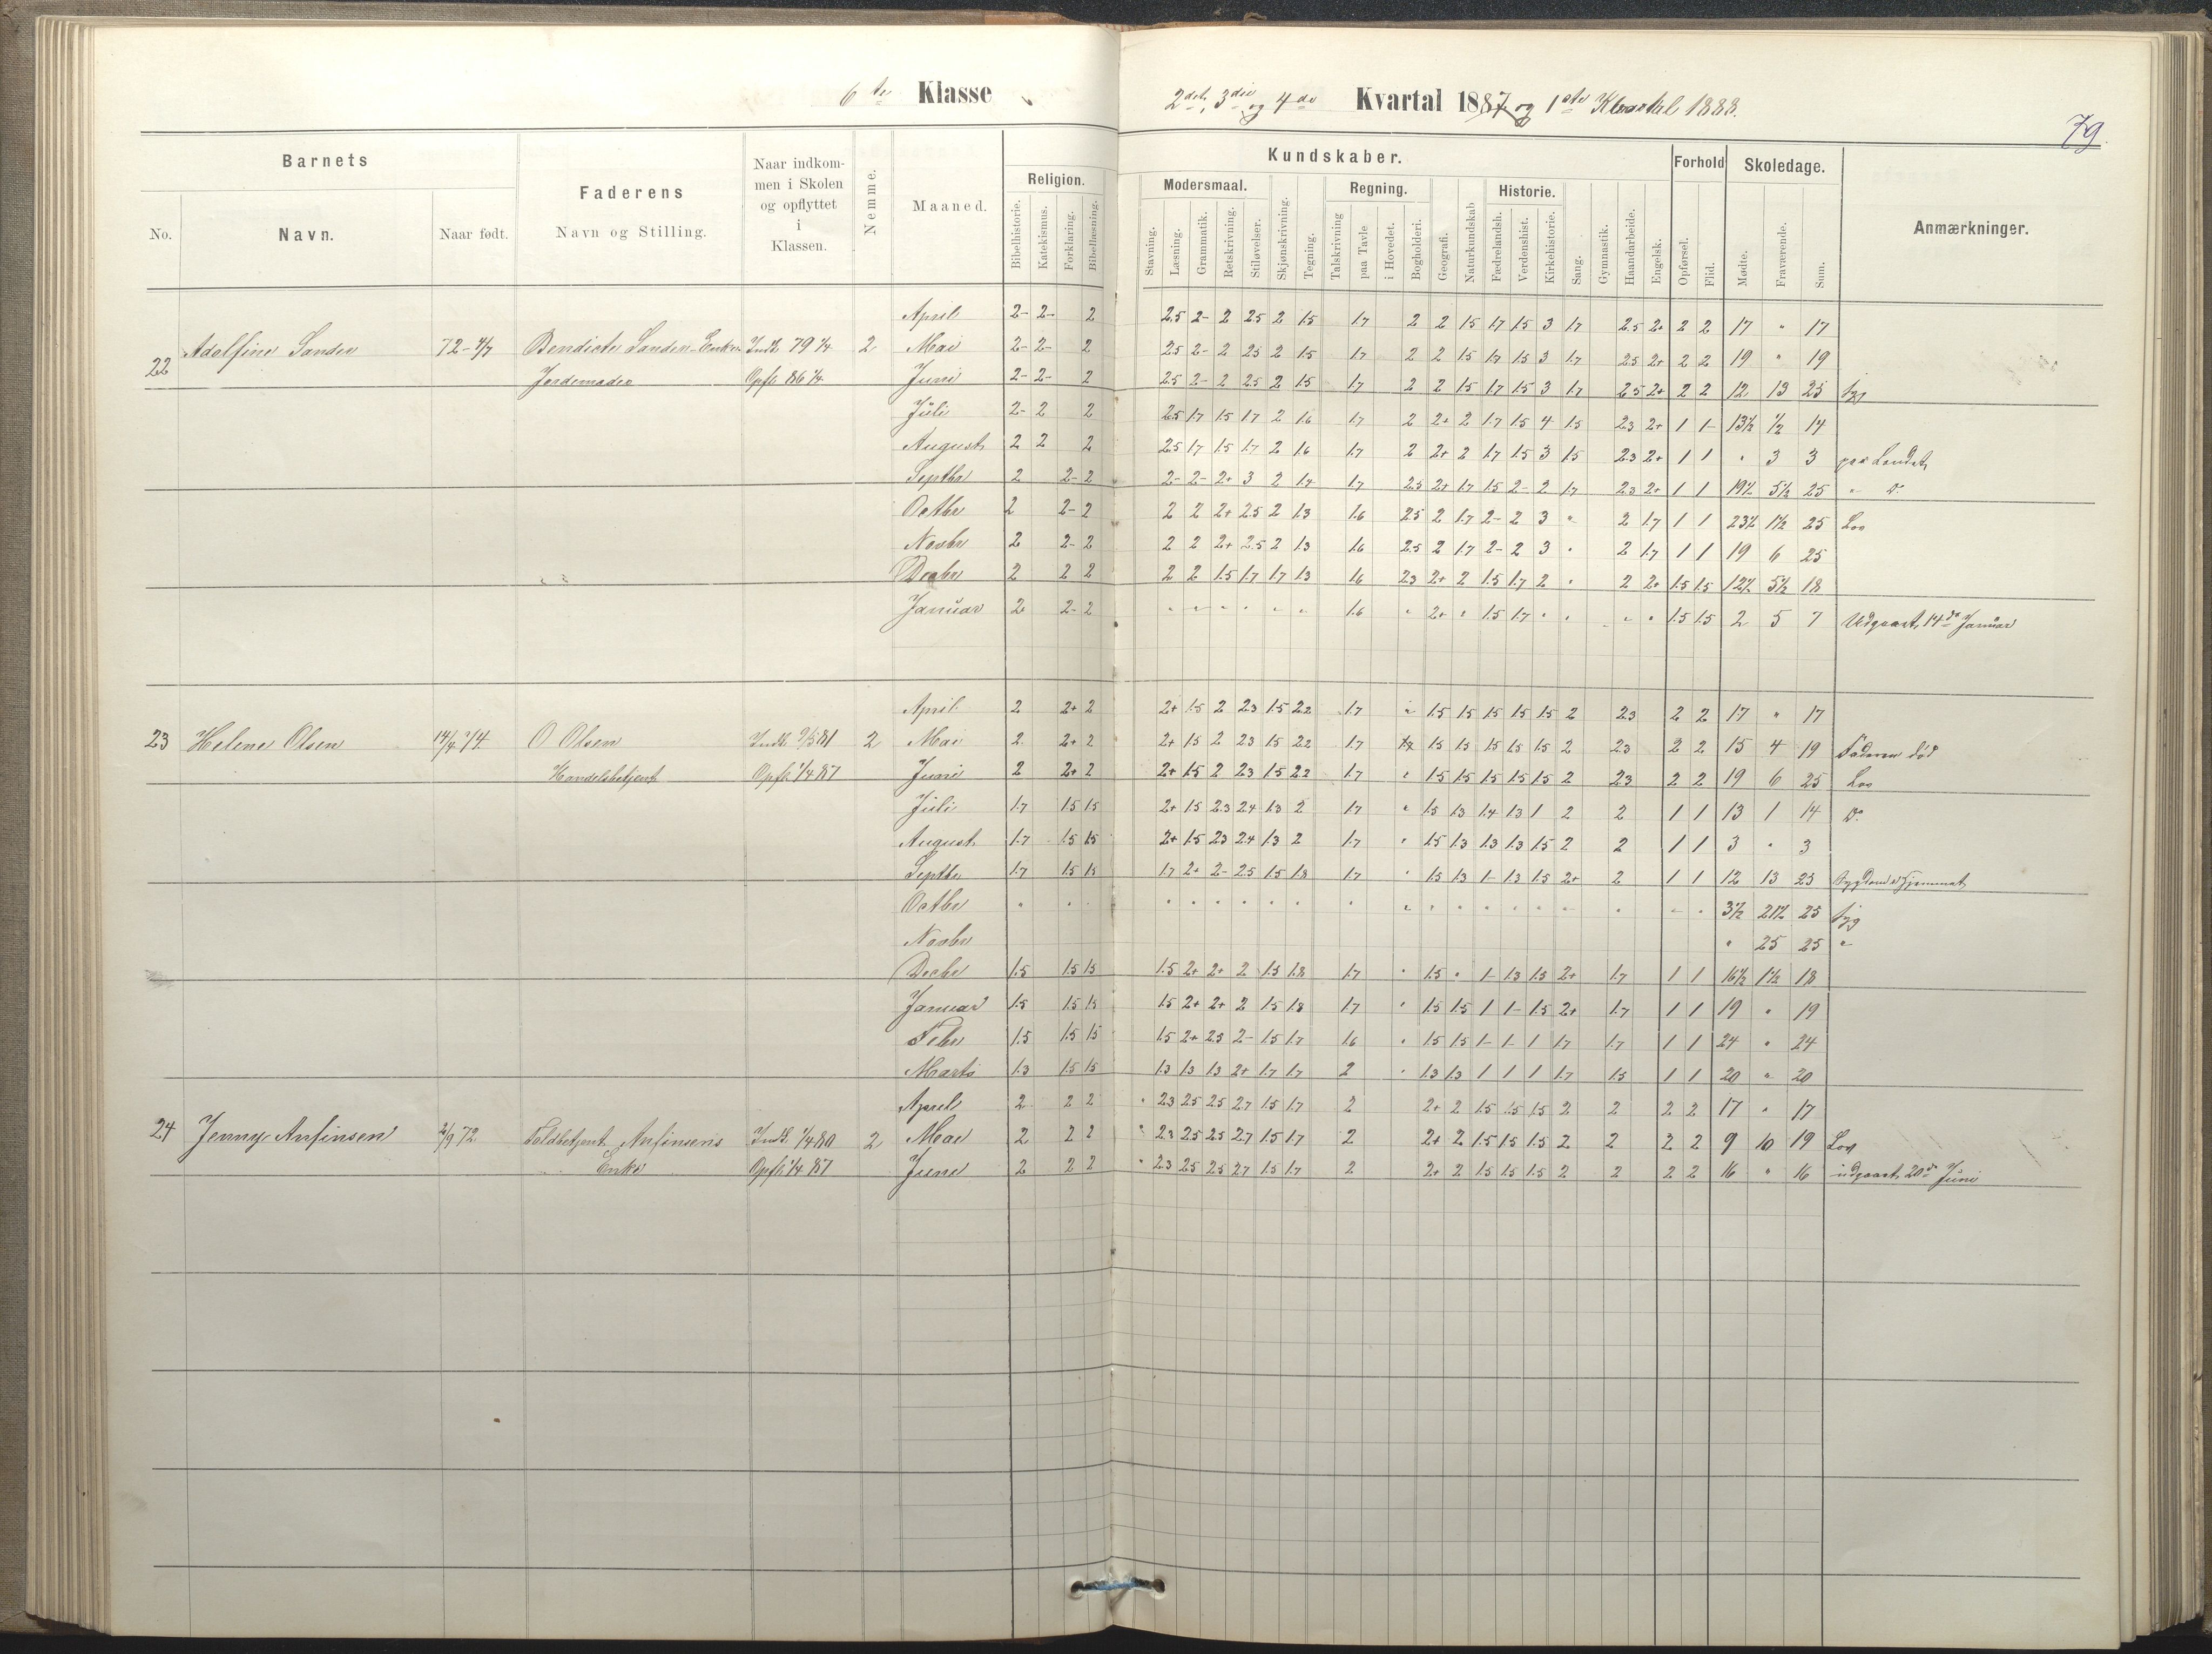 6te Klasse
2det, 3die og 4de Kvartal 1887 og 1ste Kvartal 1888.
79.
Barnets
No.
Navn.
Naar født.
Faderens
Navn og Stilling.
Naar indkom-
men i Skolen
og opflyttet
i
Klassen.
Nemme.
Maaned.
Kundskaber.
Religion.
Bibelhistorie.
Katekismus.
Forklaring.
Bibellæsning.
Modersmaal.
Stavning.
Læsning.
Grammatik.
Retskrivning.
Stiløvelser.
Skjønskrivning.
Tegning.
Regning.
Talskrivning
paa Tavle
i Hovedet.
Bogholderi.
Geografi.
Naturkundskab
Historie.
Fædrelandsh.
Verdenshist.
Kirkehistorie.
Sang.
Gymnastik.
Haandarbeide.
Engelsk.
Forhold
Opførsel.
Flid.
Skoledage.
Mødte.
Fraværende.
Sum.
Anmærkninger.
April 2- 2- 2 2.5 2- 2 2.5 2 1.5 1.7 2 2 1.5 1.7 1.5 3 1.7 2.5 2+ 2 2 17 " 17
22 Adolfine Sander 72-4/7 Bendicte Sander-Enke Indk. 79 1/4 2 Mai 2- 2- 2 2.5 2- 2 2.5 2 1.5 1.7 2 2 1.5 1.7 1.5 3 1.7 2.5 2+ 2 2 19 " 19
Jordemoder Opfl. 86 1/4 Juni 2- 2- 2 2.5 2- 2 2.5 2 1.5 1.7 2 2 1.5 1.7 1.5 3 1.7 2.5 2+ 2 2 12 13 25 syg
Juli 2- 2 2 2.5 1.7 1.5 1.7 2 1.6 1.7 2 2+ 2 1.7 1.5 4 1.5 2.3 2+ 1 1- 13½ ½ 14
August 2 2 2 2.5 1.7 1.5 1.7 2 1.6 1.7 2 2+ 2 1.7 1.5 3 1.5 2.3 2+ 1 1 " 3 3 paa Landet
Septbr 2 2- 2 2- 2- 2+ 3 2 1.4 1.7 2.5 2+ 1.7 1.5 2- 2 1.7 2.3 2+ 1 1 19½ 5½ 25 " Do
Octbr 2 2- 2 2 2 2+ 2.5 2 1.3 1.6 2.5 2 1.7 2- 2 3 " 2 1.7 1 1 23½ 1½ 25 Lov
Novbr 2 2- 2 2 2 2+ 2.5 2 1.3 1.6 2.5 2 1.7 2- 2 3 " 2 1.7 1 1 19 6 25
Decbr 2 2 2 2 2 1.5 1.7 1.7 1.3 1.6 2.3 2+ 2 1.5 1.7 2 " 2 2+ 1.5 1.5 12½ 5½ 18
Januar 2 2- 2 " " " " " " 1.6 " 2+ " 1.5 1.7 " " " " 1.5 1.5 2 5 7 Udgaaet 14de Januar
April 2 2+ 2 2+ 1.5 2 2.3 1.5 2.2 1.7 " 1.5 1.5 1.5 1.5 1.5 2 2.3 2 2 17 " 17
23 Helene Olsen 14/4 74 O Olsen Indk. 9/5 81 2 Mai 2 2+ 2 2+ 1.5 2 2.3 1.5 2.2 1.7 1.5 1.5 1.5 1.5 1.5 2 2.3 2 2 15 4 19 Faderen død
Handelsbetjent Opfl. 1/4 87 Juni 2 2+ 2 2+ 1.5 2 2.3 1.5 2.2 1.7 " 1.5 1.5 1.5 1.5 1.5 2 2.3 2 2 19 6 25 Lov
Juli 1.7 1.5 1.5 2+ 1.5 2.3 2.4 1.3 2 1.7 " 1.5 1.3 1.4 1.3 1 2 2 1 1 13 1 14 Do
August 1.7 1.5 1.5 2+ 1.5 2.3 2.4 1.3 2 1.7 " 1.5 1.3 1.3 1.3 1.5 2 2 1 1 3 " 3
Septbr 1.7 1.5 1.5 1.7 2+ 2- 2.5 1.5 1.8 1.7 " 1.5 1.3 1- 1.3 1.5 2+ 2 1 1 12 13 25 Sygdom i Hjemmet
Octbr " " " " " " " " " " " " " " " " " " " " 3½ 21½ 25 syg
Novbr " 25 25 "
Decbr 1.5 1.5 1.5 1.5 2+ 2+ 2 1.5 1.8 1.7 " 1.5 " 1- 1.3 1.5 2+ 1.7 1 1 16½ 1½ 18
Januar 1.5 1.5 1.5 1.5 2+ 2+ 2 1.5 1.8 1.7 " 1.5 1.5 1 1- 1.5 2+ 1.7 1 1 19 " 19
Febr 1.5 1.5 1.5 1.5 2+ 2.3 2- 1.5 1.7 1.6 " 1.5 1.5 1- 1- 1 1.7 1.7 1 1 24 " 24
Marts 1.3 1.5 1.5 1.3 1.3 1.3 2+ 1.7 1.7 2 " 1.3 1.3 1 1 1 1.7 1.5 1 1 20 " 20
April 2 2 2 " 2.3 2.5 2.5 2.7 1.5 1.7 2 2+ 2 1.5 1.5 1.5 2 2 2 2 17 " 17
24 Jenny Anfinsen 2/9 72 Toldbetjent Anfinsens Indk. 1/4 80 2 Mai 2 2 2 " 2.3 2.5 2.5 2.7 1.5 1.7 2 2+ 2 1.5 1.5 1.5 2 2 2 2 9 10 19 Lov
Enke Opfl. 1/4 87 Juni 2 2 2 " 2.3 2.5 2.5 2.7 1.5 1.7 2 2+ 2 1.5 1.5 1.5 2 2 2 2 16 " 16 udgaaet 20de Juni